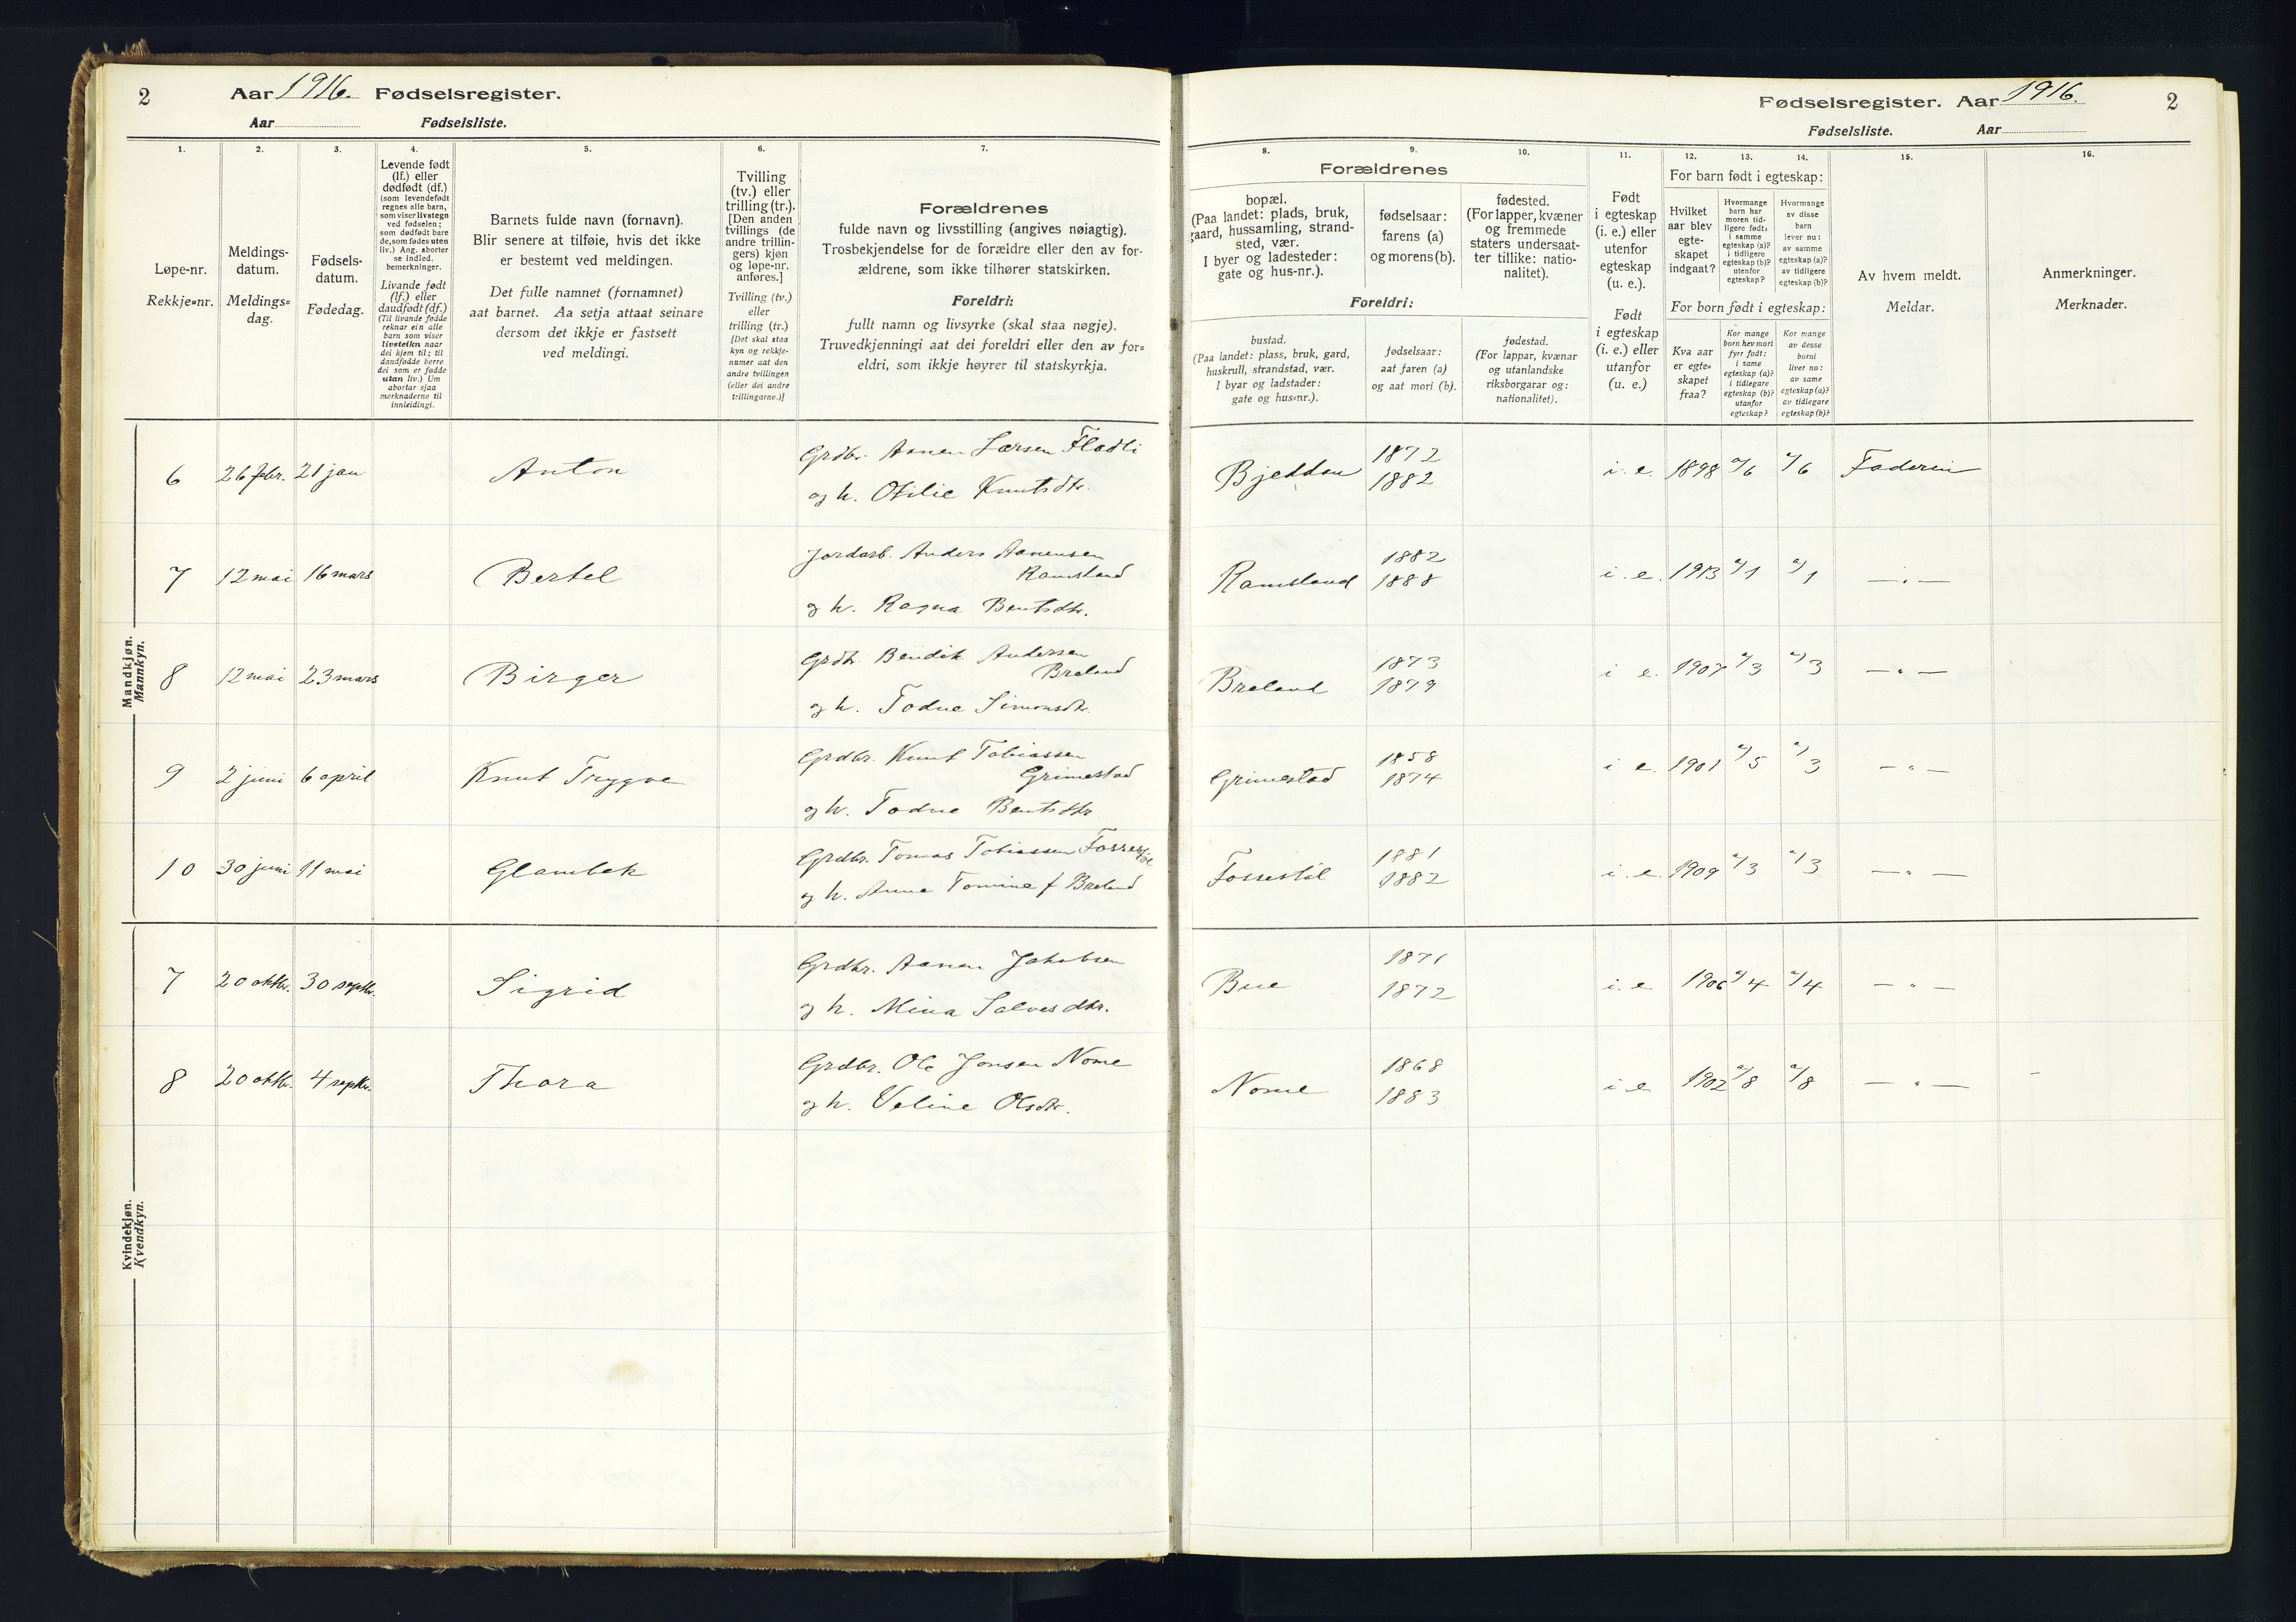 2
Aar 1916. Fødselsregister.
Aar Fødselsliste.
1.
2.
3.
4.
5.
6.
7.
Løpe-nr.
Rekkje=nr.
Meldings-
datum.
Meldings=
dag.
Fødsels-
datum.
Fødedag.
Levende født
(lf.) eller
dødfødt (df.)
(som levendefødt
regnes alle barn,
som viser livstegn
ved fødselen;
som dødfødt bare
de, som fødes uten
liv.) Ang. aborter
se indled.
bemerkninger.
Livande født
(lf.) eller
daudfødt (df.)
(Til livande fødde
reknar ein alle
barn som viser
livsteikn naar
dei kjem til; til
daudfødde berre
dei som er fødde
utan liv.) Um
abortar sjaa
merknaderne til
innleidingi.
Barnets fulde navn (fornavn).
Blir senere at tilføie, hvis det ikke
er bestemt ved meldingen.
Det fulle namnet (fornamnet)
aat barnet. Aa setja attaat seinare
dersom det ikkje er fastsett
ved meldingi.
Tvilling
(tv.) eller
trilling (tr.).
[Den anden
tvillings (de
andre trillin-
gers) kjøn
og løpe-nr.
anføres.]
Tvilling (tv.)
eller
trilling (tr.)
[Det skal staa
kyn og rekkje-
numer aat den
andre tvillingen
(eller dei andre
trillingarne.)]
Forældrenes
fulde navn og livsstilling (angives nøiagtig).
Trosbekjendelse for de forældre eller den av for-
ældrene, som ikke tilhører statskirken.
Foreldri:
fullt namn og livsyrke (skal staa nøgje).
Truvedkjenningi aat dei foreldri eller den av for=
eldri, som ikkje høyrer til statskyrkja.
Mandkjøn.
Mannkyn.
6 26 febr. 21 jan Anton
Grdbr. Aanen Larsen Fladli
og h. Otilie Knutsdtr.
7 12 mai 16 mars Bertel
Jordarb. Anders Aanensen
Ramsland
og h. Ragna Bentsdtr.
8 12 mai 23 mars Birger
Grdbr. Bendik Andersen
Breland
og h. Todne Simonsdtr.
9 2 juni 6 april Knut Trygve
Grdbr. Knut Tobiassen
Grimestad
og h. Todne Bentsdtr.
10 30 juni 11 mai Glambek
Grdbr. Tomas Tobiassen Fossestøl
og h. Anna Tomine f Breland
Kvindekjøn.
Kvendkyn.
7 20 oktbr. 30 septbr. Sigrid
Grdbr. Aanen Jakobsen
og h. Mina Salvesdtr.
8 20 oktbr. 4 septbr. Thora
Grdbr. Ole Jonsen Nome
og h. Veline Olsdtr.
Fødselsregister. Aar 1916.
2
Fødselsliste. Aar
8.
9.
10.
11.
12.
13.
14.
15.
16.
Forældrenes
bopæl.
(Paa landet: plads, bruk,
gaard, hussamling, strand-
sted, vær.
I byer og ladesteder:
gate og hus-nr.).
fødselsaar:
farens (a)
og morens (b).
fødested.
(For lapper, kvæner
og fremmede
staters undersaat-
ter tillike: natio-
nalitet).
Foreldri:
bustad.
(Paa landet: plass, bruk, gard,
huskrull, strandstad, vær.
I byar og ladstader:
gate og hus=nr.).
fødselsaar:
aat faren (a)
og aat mori (b).
fødestad.
(For lappar, kvænar
og utanlandske
riksborgarar og:
nationalitet).
Født
i egteskap
(i. e.) eller
utenfor
egteskap
(u. e.).
Født
i egteskap
(i. e.) eller
utanfor
(u. e.)
For barn født i egteskap:
Hvilket
aar blev
egte-
skapet
indgaat?
Hvormange
barn har
moren tid-
ligere født,
i samme
egteskap (a)?
i tidligere
egteskap (b)?
utenfor
egteskap?
Hvormange
av disse
barn
lever nu:
av samme
egteskap (a)?
av tidligere
egteskap (b)?
For born født i egteskap:
Kva aar
er egte=
skapet
fraa?
Kor mange
born hev mori
fyrr født:
i same
egteskap (a)?
i tidlegare
egteskap (b)?
utanfor
egteskap?
Kor mange
av desse
borni
liver no:
av same
egteskap (a)?
av tidlegare
egteskap (b)?
Av hvem meldt.
Meldar.
Anmerkninger.
Merknader.
Bjelldan 1872
1882 i. e. 1898 a/6 a/6 Faderen
Ramsland 1882
1888 i. e. 1913 a/1 a/1 — " —
Breland 1873
1879 i e. 1907 a/3 a/3 — " —
Grimestad 1858
1874 i e. 1901 a/5 a/3 — " —
Fossestöl 1881
1882 i. e. 1909 a/3 a/3 — " —
Bue 1871
1872 i. e 1906 a/4 a/4 — " —
Nome 1868
1883 i e 1902 a/8 a/8 — " —